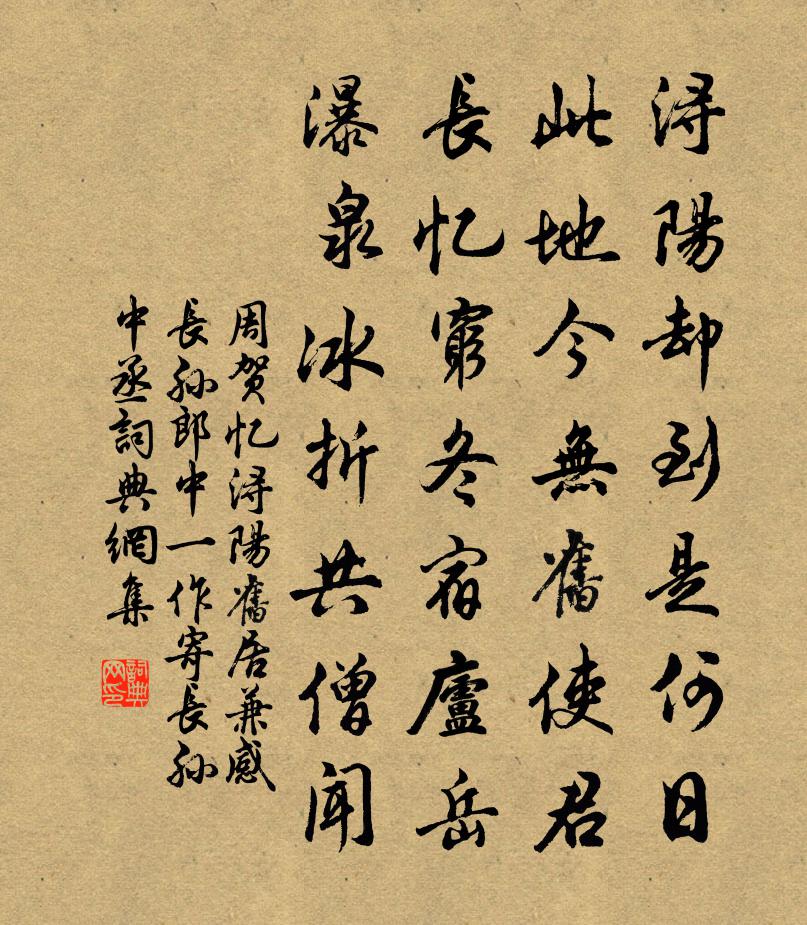 浔陽却到是何日
此地今無舊使君
長忆窮冬宿廬岳
瀑泉冰折共僧聞
周贺忆浔陽舊居兼感
長孙郎中一作寄長孙
中丞詞典網集
詞典网印